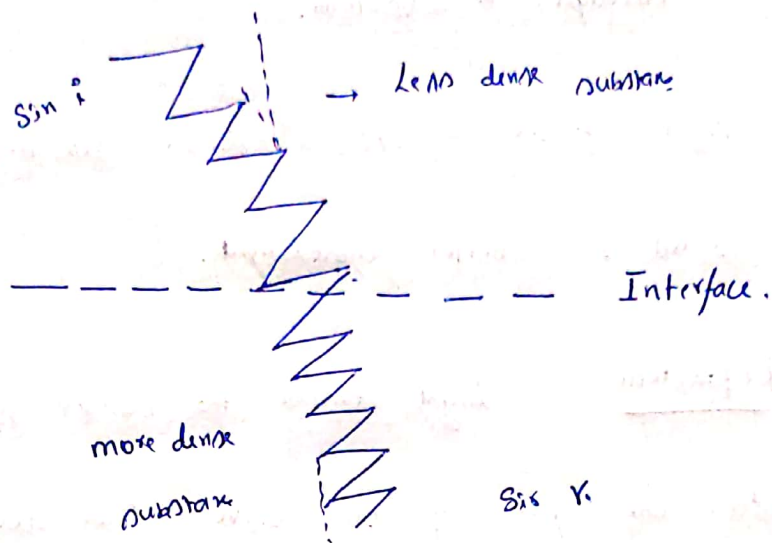 Sin i
→ Less dense substan
Interface.
more dense
substane
Sis r.